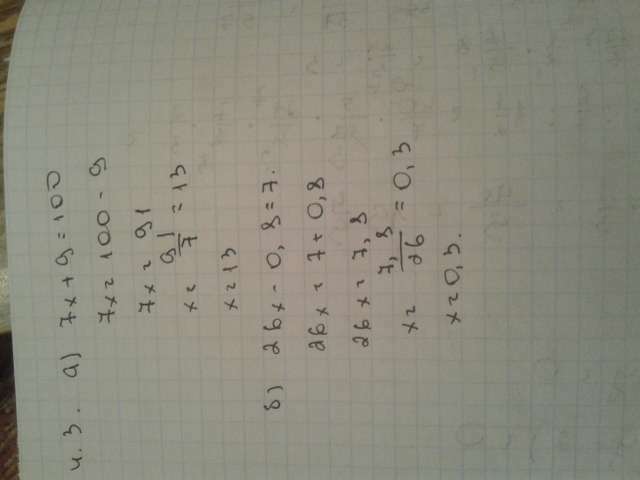 4.3. а) 7x+9=100
7x=100-9
7x=91
x=91/7=13
x=13
б) 26x-0,8=7.
26x=7+0,8
26x=7,8
x=7,8/26=0,3
x=0,3.